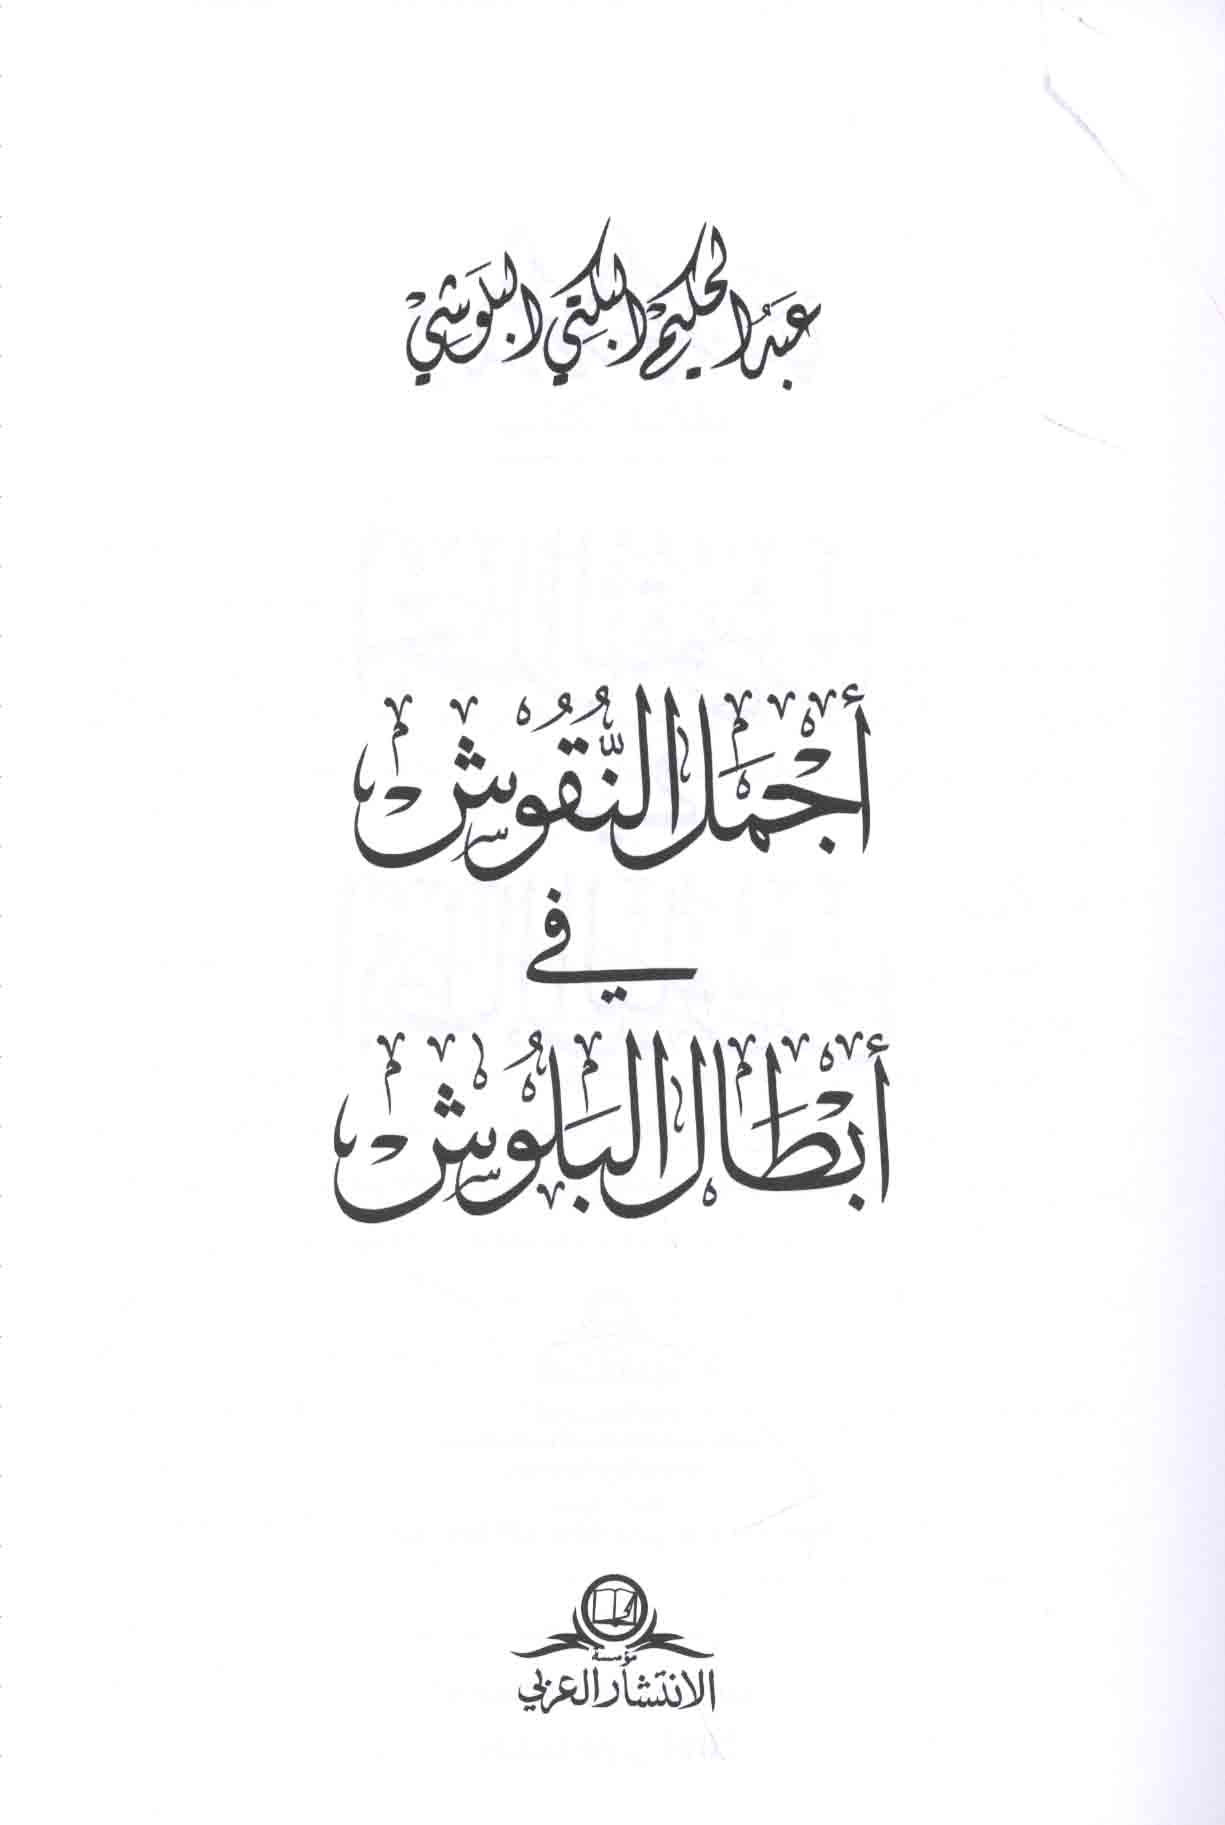 عبد الحكيم البكتي البلوشي
أجمل النقوش
في
أبطال البلوش
مؤسسة
الانتشار العربي